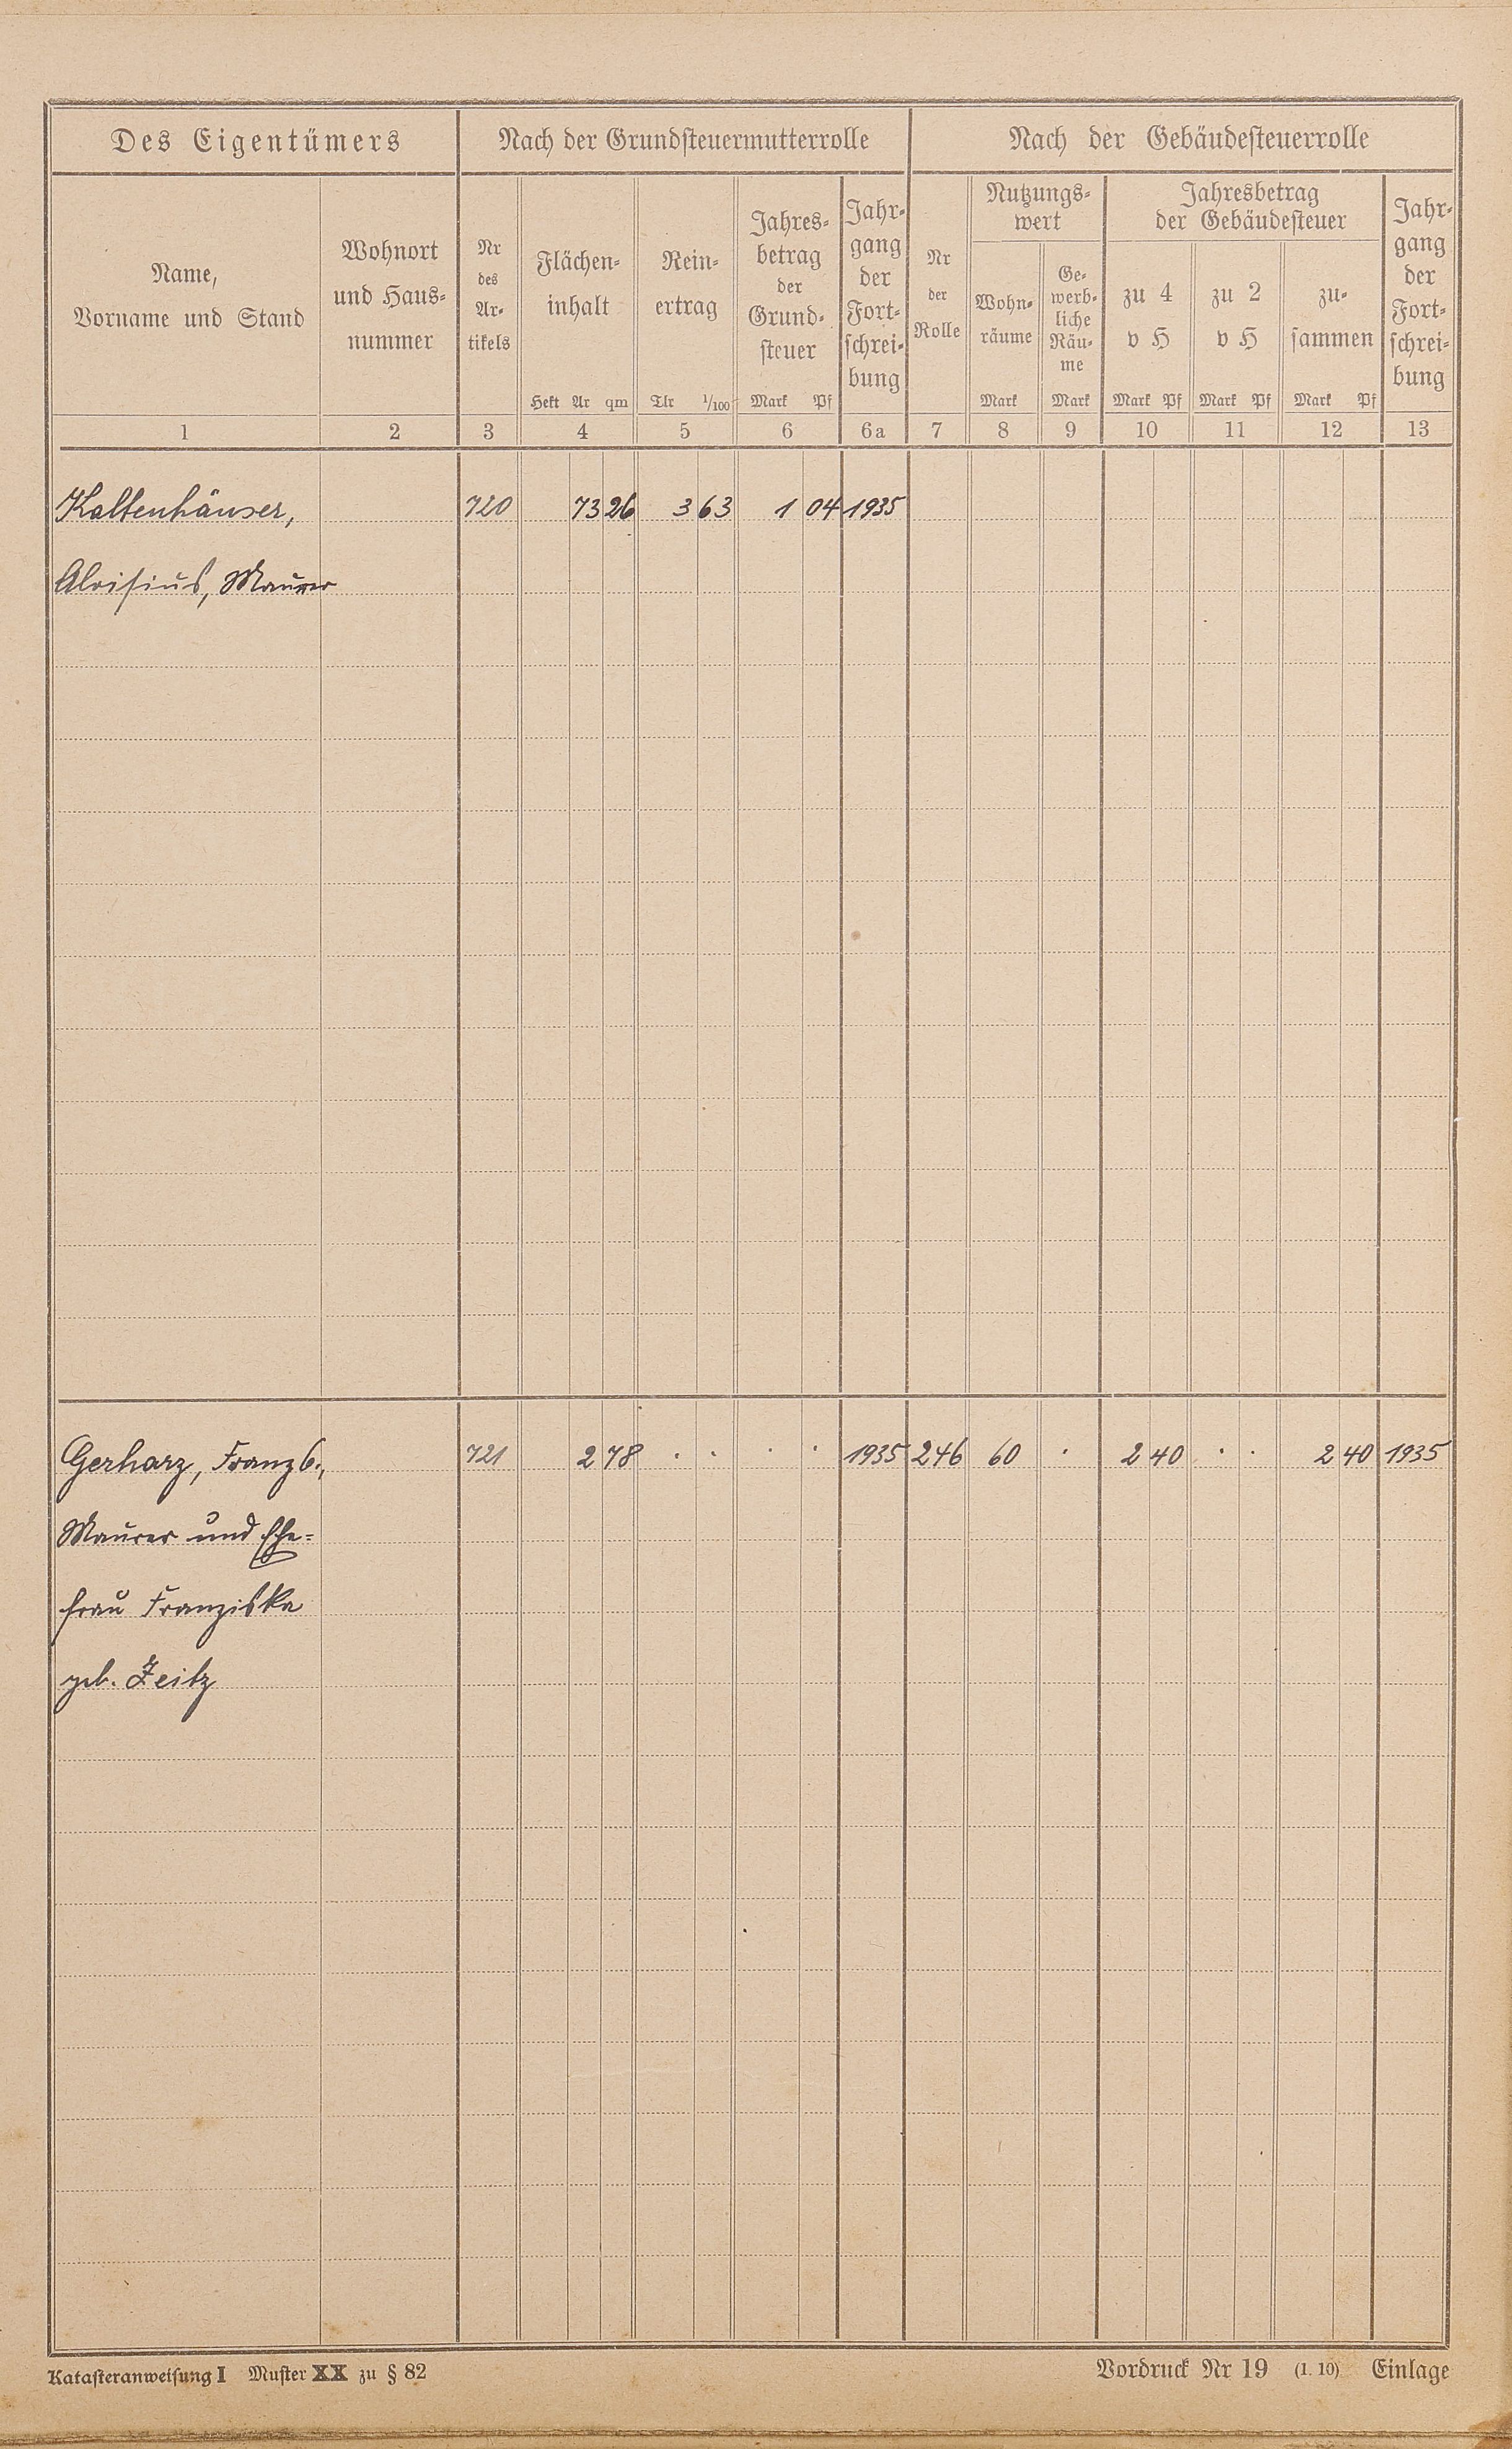 Des Eigentümers Nach der Grundsteuermutterrolle Nach der Gebäudesteuerrolle
Name,
Vorname und Stand
Wohnort
und Haus-
nummer
Nr
des
Ar-
tikels
Flächen-
inhalt
Hekt Ar qm
Rein-
ertrag
Tlr 1/100
Jahres-
betrag
der
Grund-
steuer
Mark Pf
Jahr-
gang
der
Fort-
schrei-
bung
Nr
der
Rolle
Nutzungs-
wert
Wohn-
räume
Mark
Ge-
werb-
liche
Räu-
me
Mark
Jahresbetrag
der Gebäudesteuer
zu 4
v H
Mark Pf
zu 2
v H
Mark Pf
zu-
sammen
Mark Pf
Jahr-
gang
der
Fort-
schrei-
bung
1 2 3 4 5 6 6a 7 8 9 10 11 12 13
Kaltenhäuser, 720 73 26 3 63 1 04 1935
Aloisius, Maurer
Gerharz, Franz 6., 721 2 78 . . . . 1935 246 60 . 2 40 . . 2 40 1935
Maurer und Ehe-
frau Franziska
geb. Zeitz
Katasteranweisung I Muster XX zu § 82 Vordruck Nr 19 (1. 10) Einlage